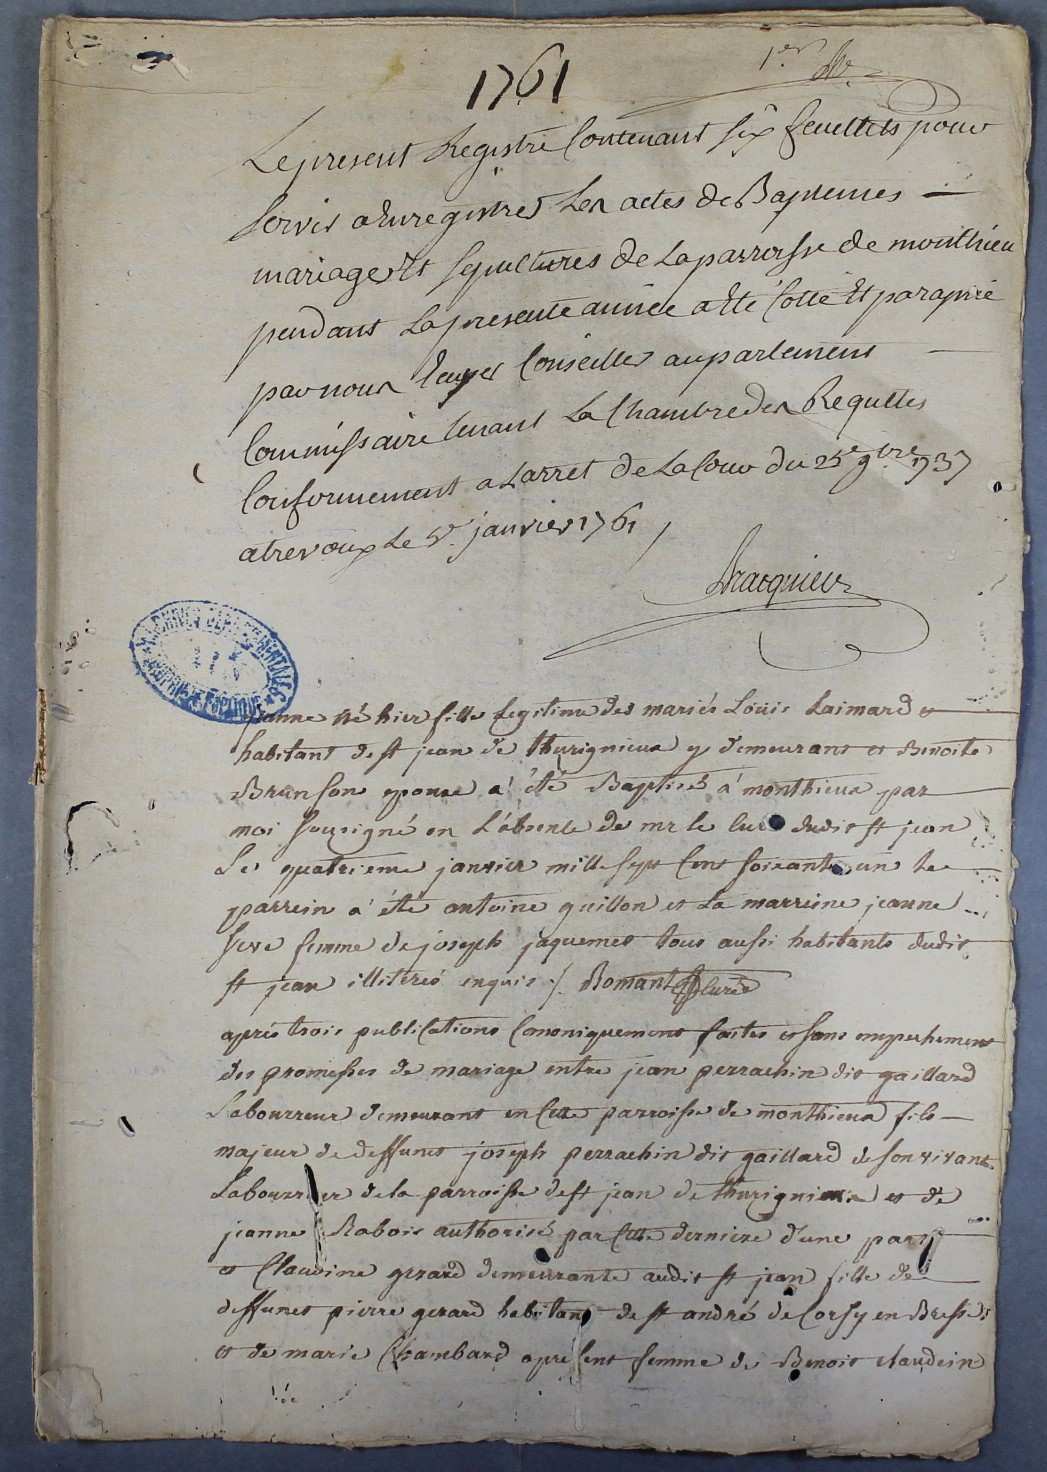 1761
1er
Le present Registre Contenant six feuillets pour
servir a Enregistrer Les actes de Baptemes
mariages Et sepultures de La parroisse de monthieu
pendant La presente année a Eté Cotté Et paraphé
par nous Conseiller au parlement
Commissaire tenant La Chambre des Requettes
Conformement a L'arret de La Cour du 25e 9bre 1737
a trevoux Le 5e janvier 1761
ARCHIVES DEPARTEMENTALES
jeanne né hier fille legitime des mariés Loüis Laimard et
habitant de st jean de thurignieux y demeurant et Benoite
Brunson epouse a' été Baptisé a' monthieux par
moi sousigné en L'absence de mr le curé dudit st jean
Le quatrieme janvier mille sept Cent soixante un le
parrein a' été antoine guillon et La marreine jeanne
seve femme de joseph jaquemet tous aussi habitants dudit
st jean illiterés enquis ./. Romant Curé
apres trois publications Canoniquement faites et sans empechement
des promesses de mariage entre jean perrachin dit gaillard
Laboureur demeurant en Cette parroisse de monthieux fils
majeur de deffunct joseph perrachin dit gaillard de son vivant
Laboureur de la parroisse de st jean de thurignieux et de
jeanne Rabois authorisé par Cette derniere d'une part
et Claudine gerard demeurante audit st jean fille de
deffunct pierre gerard habitant de st andré de Corsy en Bresse
et de marie Chambard apresent femme de Benoit claudein